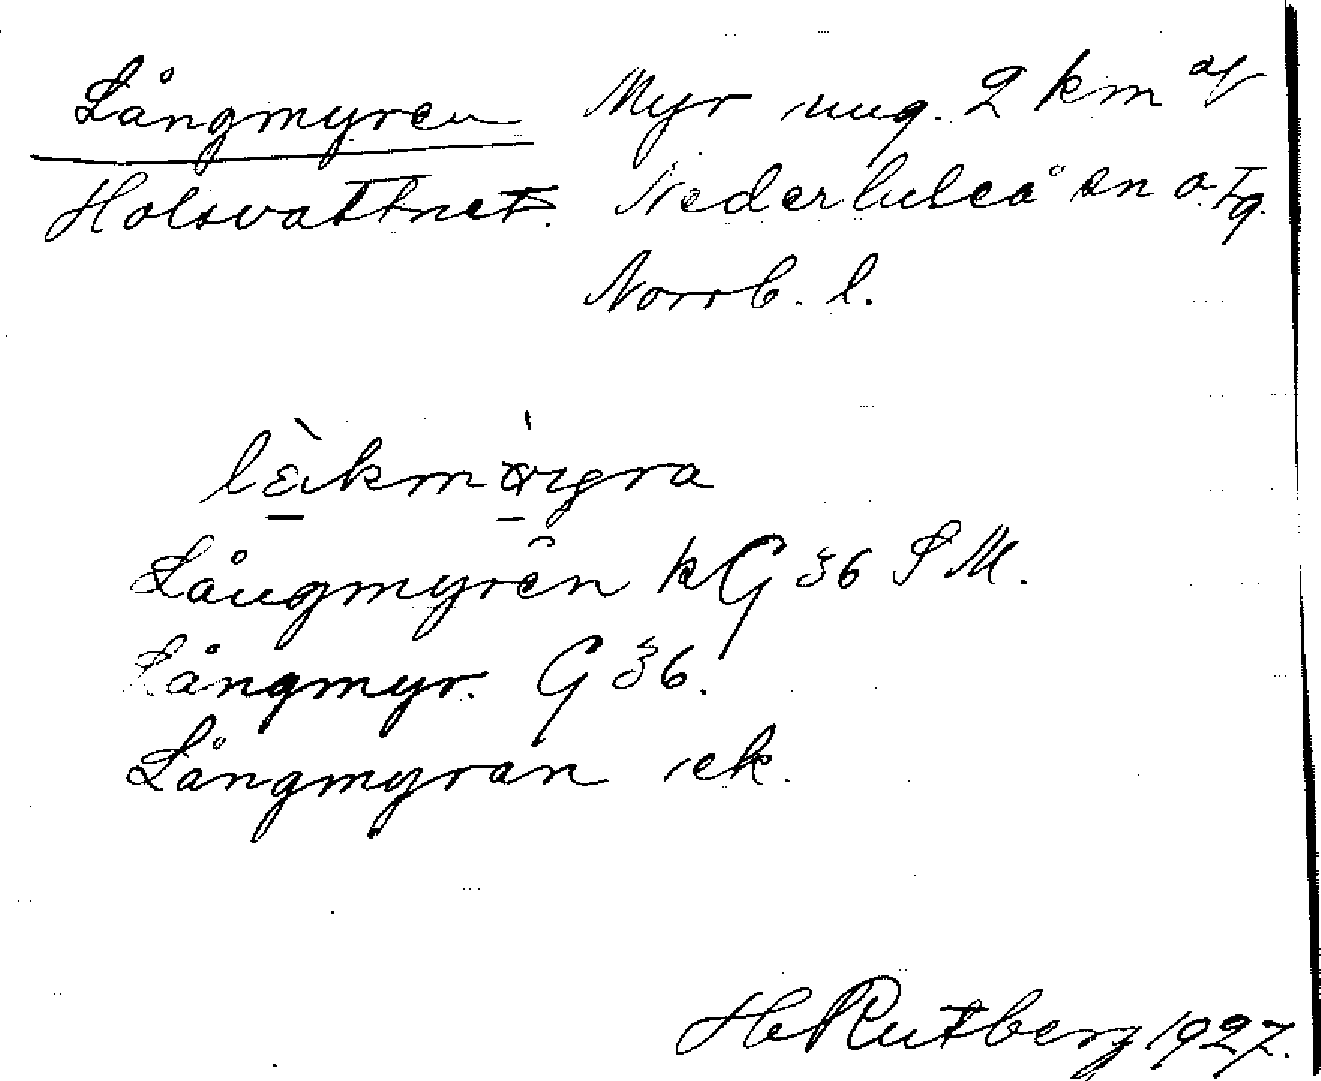 Långmyren Myr ung. 2 km av
Holsvattnet. Nederluleå sn o. tg.
Norrb. l.
Långmyrên kG 36 S M.
Långmyr. G 36.
Långmyran ek.
H Rutberg 1927.